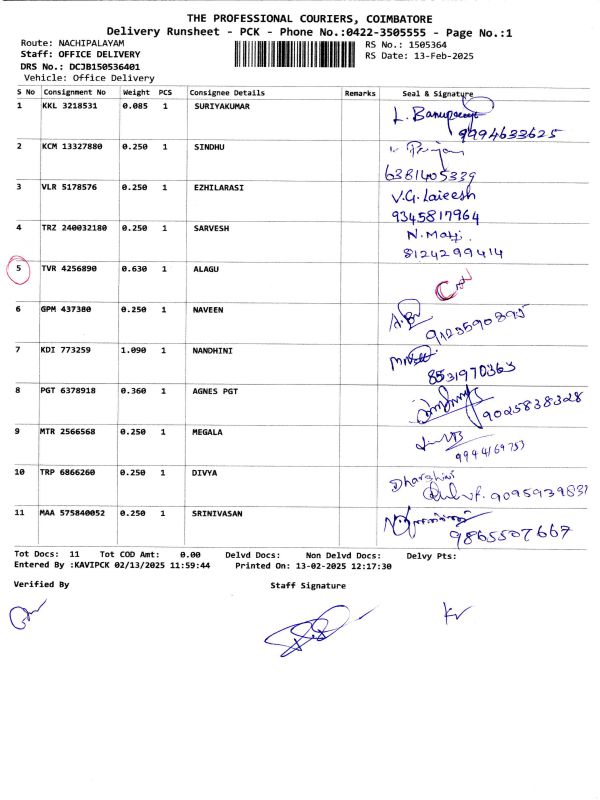 THE PROFESSIONAL COURIERS, COIMBATORE
Delivery Runsheet - PCK - Phone No.:0422-3505555 - Page No.:1
Route: NACHIPALAYAM
RS No.: 1505364
Staff: OFFICE DELIVERY
RS Date: 13-Feb-2025
DRS No.: DCJB150536401
Vehicle: Office Delivery
S No Consignment No Weight PCS Consignee Details Remarks Seal & Signature
1 KKL 3218531 0.085 1 SURIYAKUMAR
9994633625
2 KCM 13327880 0.250 1 SINDHU
6381405339
3 VLR 5178576 0.250 1 EZHILARASI V.G. Laieesh
9345817964
4 TRZ 240032180 0.250 1 SARVESH
8124299414
5 TVR 4256890 0.630 1 ALAGU
6 GPM 437380 0.250 1 NAVEEN
7 KDI 773259 1.090 1 NANDHINI
8531970363
8 PGT 6378918 0.360 1 AGNES PGT
9025838328
9 MTR 2566568 0.250 1 MEGALA
9994169753
10 TRP 6866260 0.250 1 DIVYA Dharshini
9095939831
11 MAA 575840052 0.250 1 SRINIVASAN
9865507667
Tot Docs: 11 Tot COD Amt: 0.00 Delvd Docs: Non Delvd Docs: Delvy Pts:
Entered By :KAVIPCK 02/13/2025 11:59:44 Printed On: 13-02-2025 12:17:30
Verified By Staff Signature